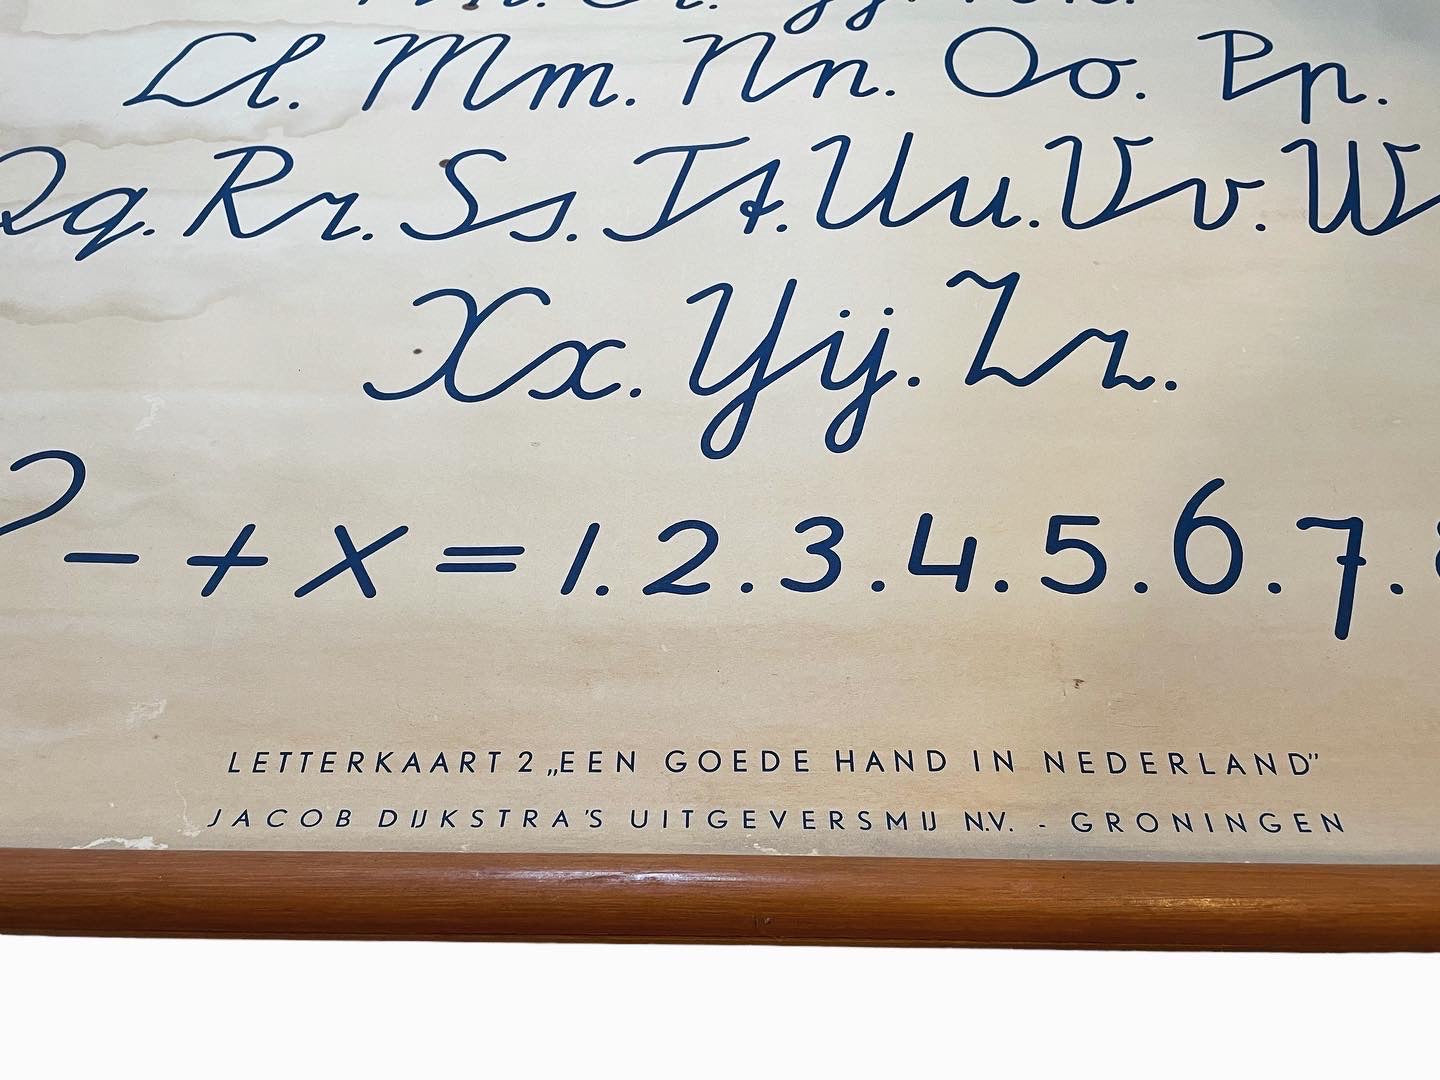 Ll. Mm. Nn. Oo. Pp.
Qq. Rr. Ss. Tt. Uu. Vv. W
Xx. IJij. Zz.
? - + x = 1. 2. 3. 4. 5. 6. 7.
LETTERKAART 2 „EEN GOEDE HAND IN NEDERLAND”
JACOB DIJKSTRA'S UITGEVERSMIJ N.V. - GRONINGEN